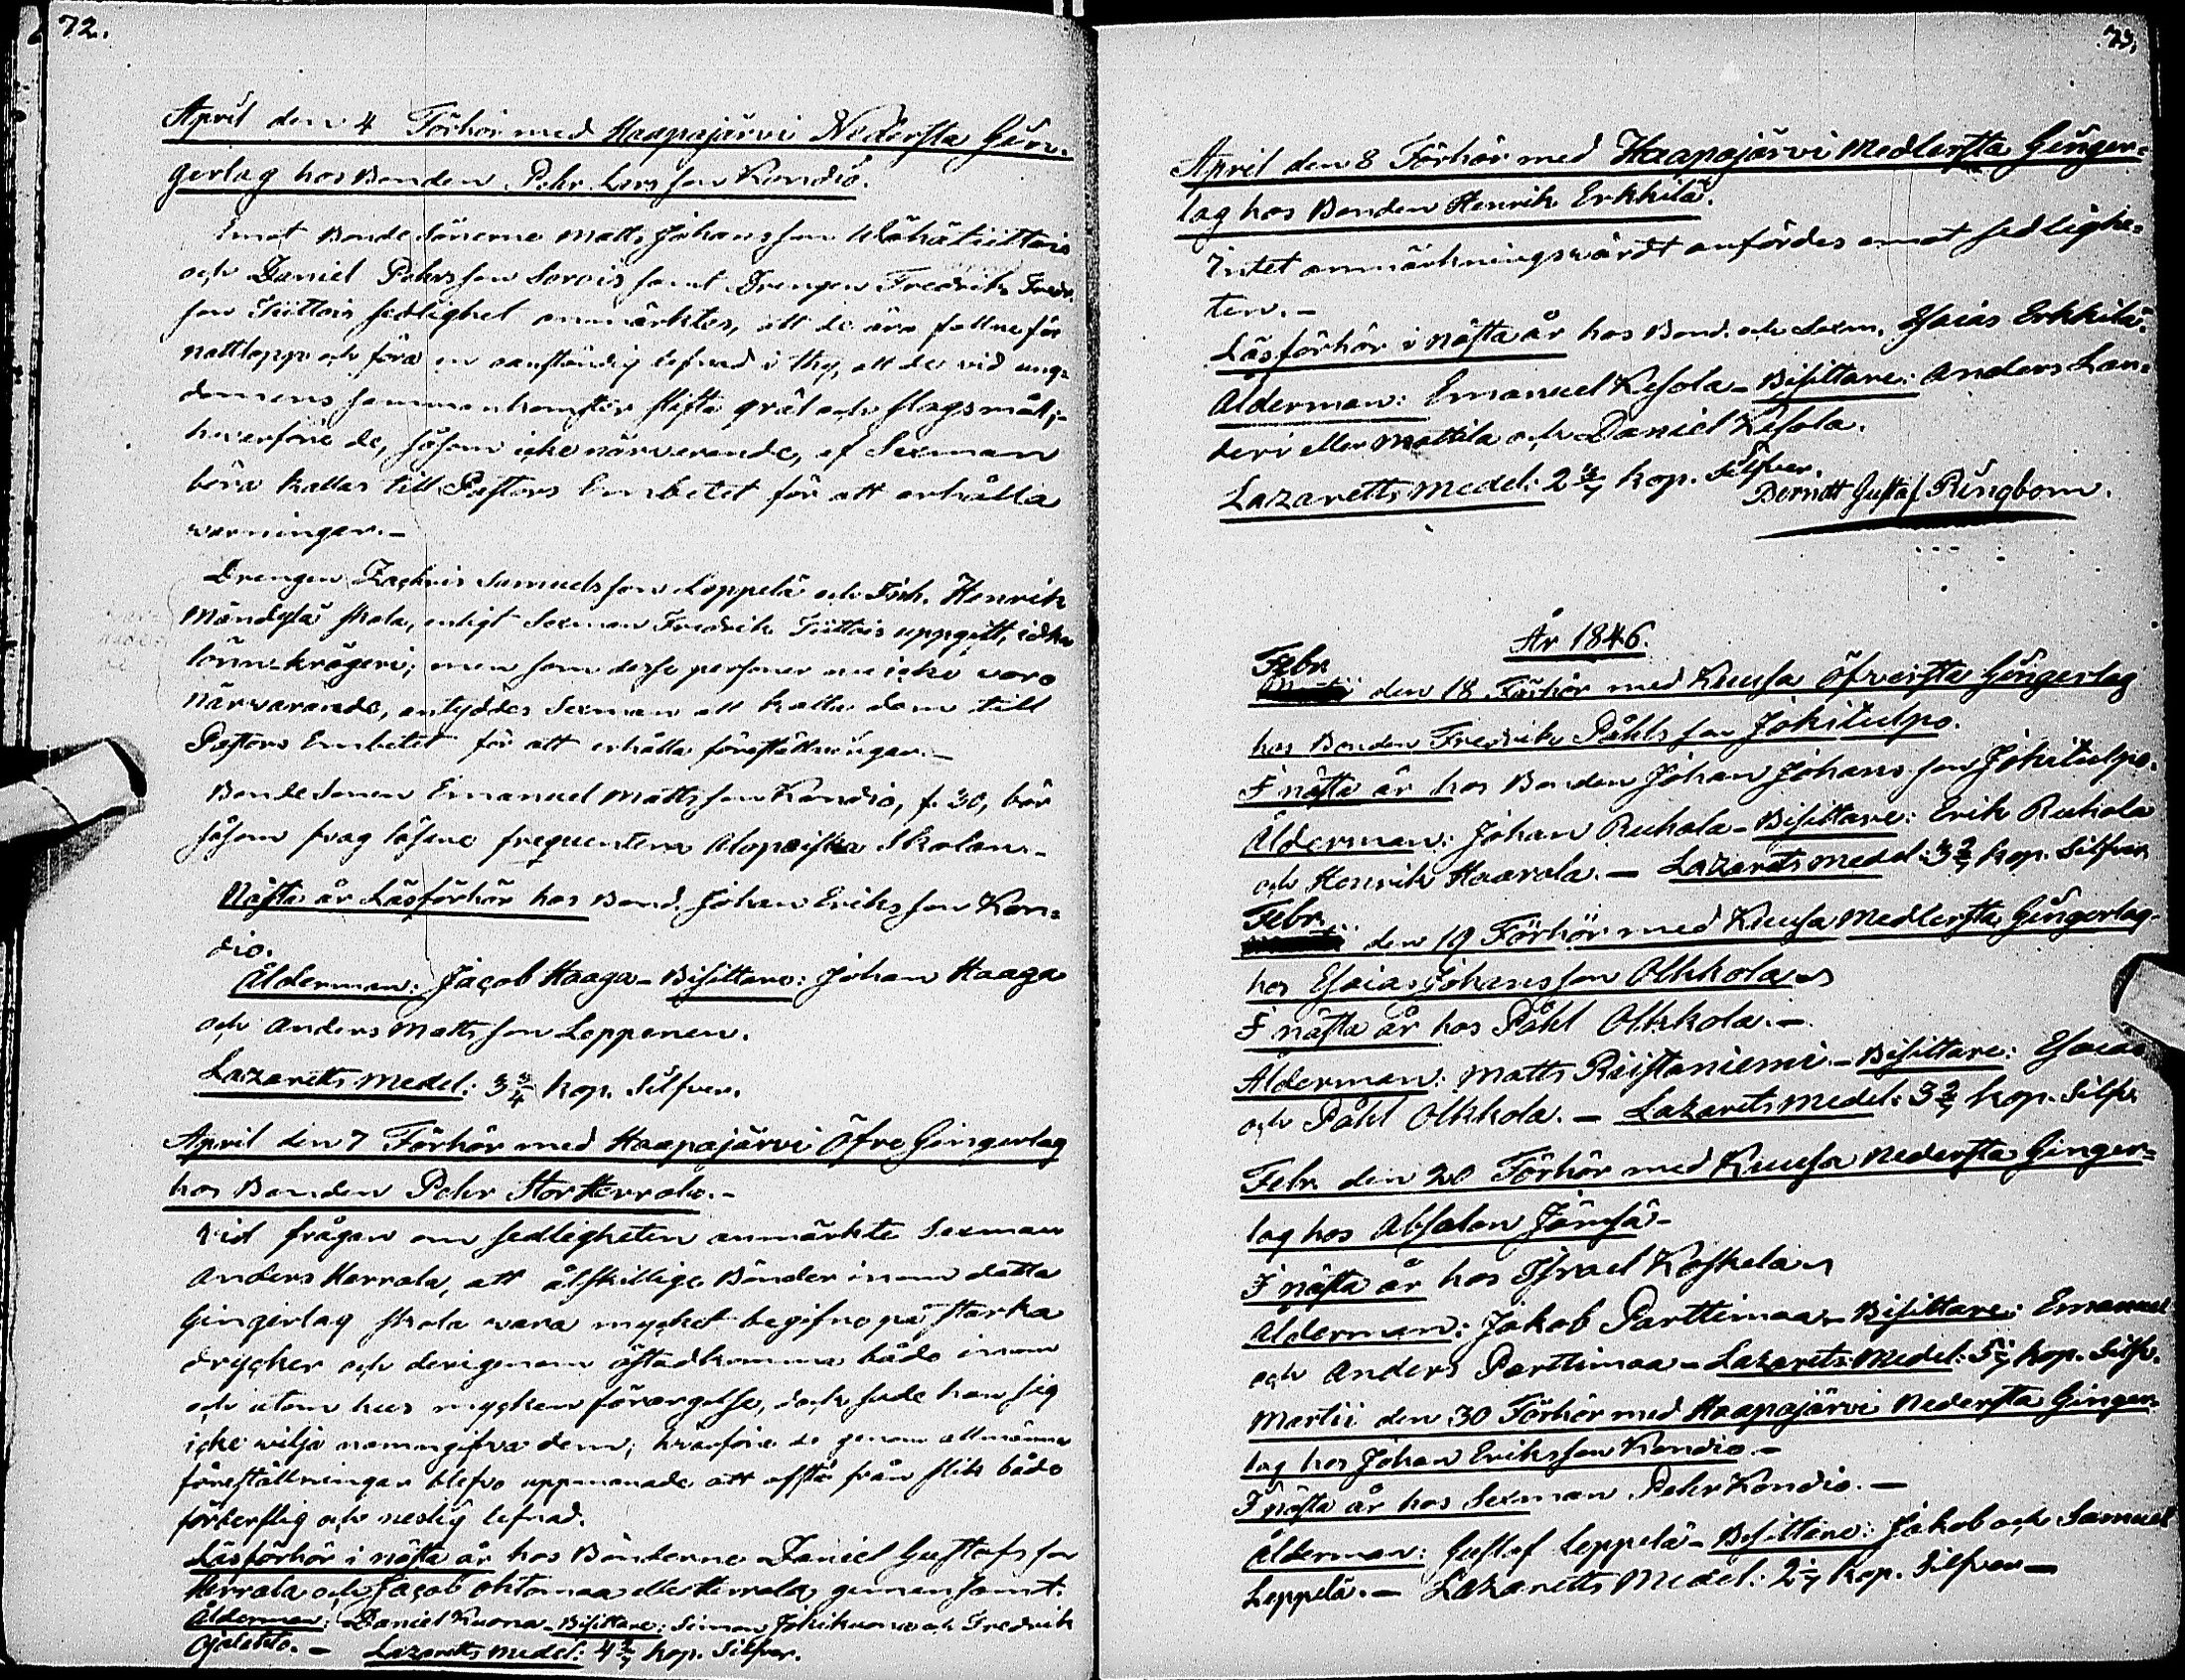 72.
April den 4 Förhör med Haapajärvi Nedersta Gin-
gerlag hos Bonden Pehr Larsson Kondio.
Emot Bondesönerne Matts Johansson Wähätiittois
och Daniel Pehrsson Sorois samt Drengen Fredrik Fredr.
son Tiittois sedlighet anmärktes, att de äro fallne för
nattlopp och föra en oanständig lefnad i thy, att de vid ung-
domens sammankomster stifta gräl och slagsmål;
hvarföre de, såsom icke närvarande, af Sexman
böra kallas till Pastors Embetet för att erhålla
varningar.-
Drengen Zachris Samuelsson Leppelä och Inh. Henrik
Mändylä skola, enligt Sexman Fredrik Tiittois uppgift, idka
lönn-krögeri; men som desse personer nu icke voro
närvarande, antyddes Sexman att kalla dem till
Pastors Embetet för att erhålla föreställningar.-
Bondesonen Emanuel Mattsson Kondio, f. 30, bör
såsom svag läsare frequentera Alopaeiska Skolan.-
Nästa år Läsförhör hos Bond. Johan Eriksson Kon-
dio.
Ålderman: Jacob Haaga - Bisittare: Johan Haaga
och Anders Mattsson Leppenen.
Lazaretts medel: 3 3/4 kop. Silfver.
April den 7 Förhör med Haapajärvi Öfre Gingerlag
hos Bonden Pehr Stor Kerrola.-
Vid frågan om sedligheten anmärkte Sexman
Anders Kerrola, att åtskillige Bönder inom detta
Gingerlag skola vara mycket begifne på starka
drycker och derigenom åstadkomma både inom
och utom hus mycken förargelse, dock sade han sig
icke vilja namngifva dem; hvarföre de genom allmänna
föreställningar blefvo uppmanade att afstå från slik både
förderflig och neslig lefnad.
Läsförhör i nästa år hos Bönderne Daniel Gustafsson
Kerrola och Jacob Ohtamaa eller Kerrola gemensamt.
Ålderman: Daniel Kuona - Bisittare: Simon Jokikuona och Fredrik
Ojalehto. - Lazaretts medel: 4 2/7 kop. Silfver.
73.
April den 8 Förhör med Haapajärvi Medlersta Ginger-
lag hos Bonden Henrik Erkkilä.
Intet anmärkningsvärdt anfördes emot sedlighe-
ten.-
Läsförhör i nästa år hos Bond. och Sexm. Esaias Erkkilä.
Ålderman: Emanuel Kesola - Bisittare: Anders Lan-
deri eller Mattila och Daniel Kesola.
Lazaretts medel: 2 4/7 kop. Silfver.
Berndt Gustaf Ringbom.
År 1846.
Febr.
den 18 Förhör med Kuusa Öfversta Gingerlag
hos Bonden Fredrik Påhlsson Jokitulpo.
I nästa år hos Bonden Johan Johansson Jokitulpo.
Ålderman: Johan Ruhola - Bisittare: Erik Ruhola
och Henrik Haarala. - Lazaretsmedel: 3 2/7 kop. Silfver
Febr.
den 19 Förhör med Kuusa Medlersta Gingerlag
hos Esaias Johansson Olkkola
I nästa år hos Påhl Olkkola.-
Ålderman: Matts Riistaniemi - Bisittare: Esaias
och Påhl Olkkola. - Lazarets medel: 3 2/7 kop. Silfv.
Febr. den 20 Förhör med Kuusa Nedersta Ginger-
lag hos Absalon Jämsä-
I nästa år hos Israel Koskela
Ålderman: Jakob Parttimaa - Bisittare: Emanuel
och Anders Parttimaa - Lazarets Medel: 5 1/7 kop. Silfv.
Martii den 30 Förhör med Haapajärvi Nedersta Ginger-
lag hos Johan Eriksson Kondio.-
I nästa år hos Sexman Pehr Kondio.-
Ålderman: Gustaf Leppelä - Bisittare: Jakob och Samuel
Leppelä.- Lazaretts Medel: 2 1/7 kop. Silfver-